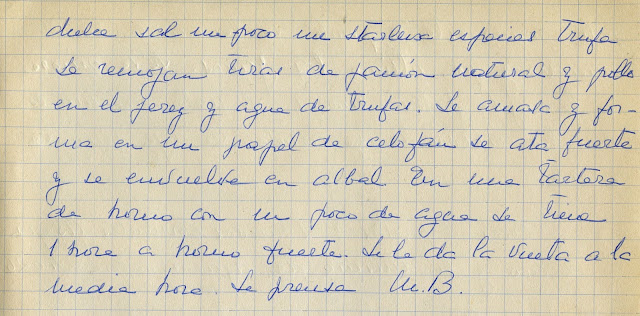 dulce sal un poco un starlux especies Trufa
Se remojan tiras de jamón natural y pollo
en el jerez y agua de trufas. Se amasa y for-
ma en un papel de celofán se ata fuerte
y se envuelve en albal En una tartera
de horno con un poco de agua se tiene
1 hora a horno fuerte. Se le da la vuelta a la
media hora. Se prensa M.B.